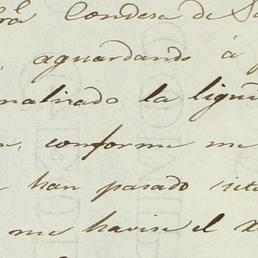 Condesa de S
aguardando á
nalizado la liqui
conforme me
han pasado siete
me havise el